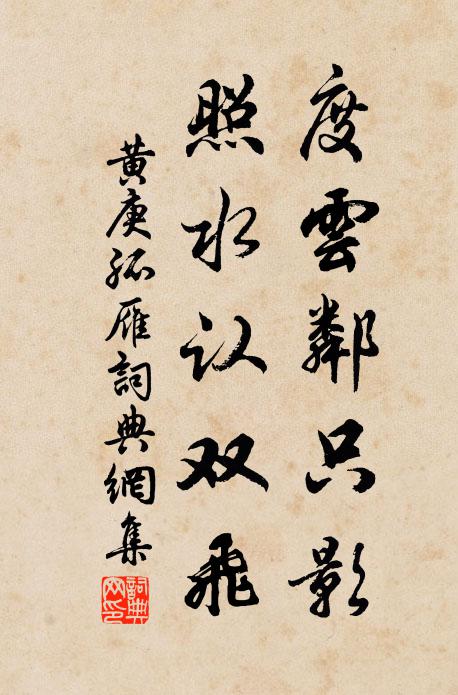 度雲鄰只影
照水认双飛
黄庚孤雁詞典網集
詞典網印